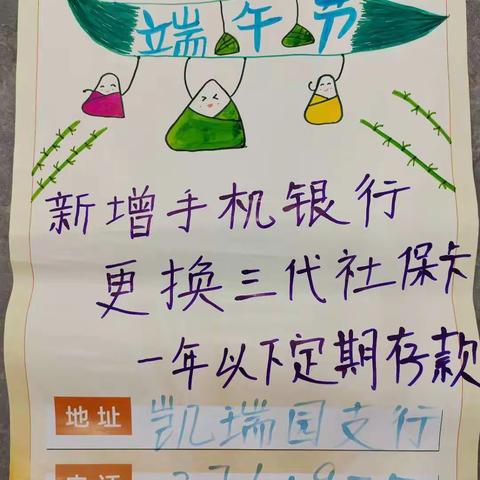 端午节
新增手机银行
更换三代社保卡
一年以下定期存款
地址 凯瑞园支行